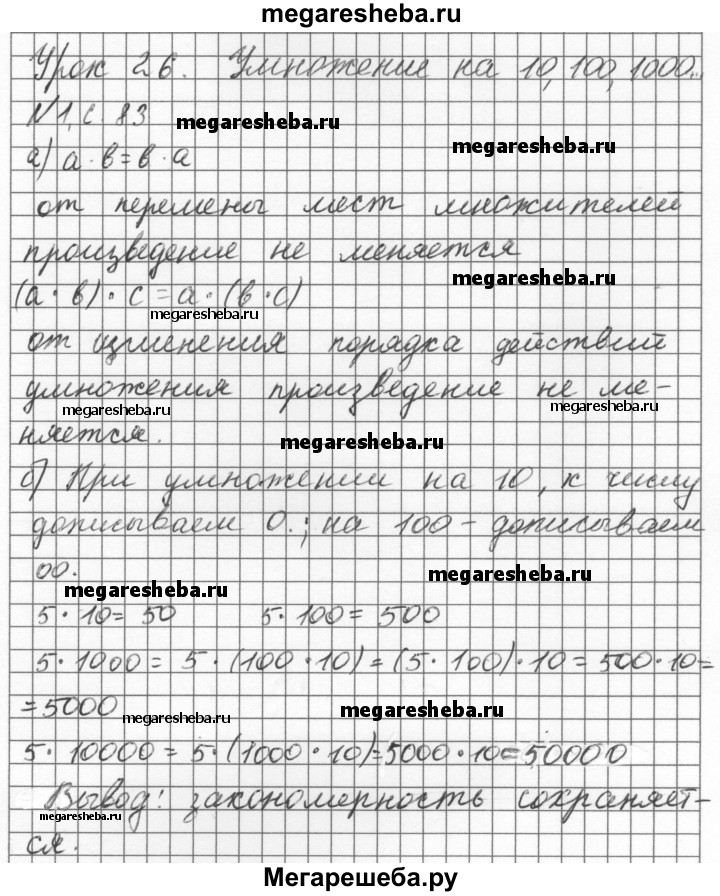 megaresheba.ru
Урок 26. Умножение на 10, 100, 1000...
N1, с. 83 megaresheba.ru
megaresheba.ru
а) а · в = в · а
от перемены мест множителей
произведение не меняется
megaresheba.ru
(а · в) · с = а · (в · с)
megaresheba.ru
от изменения порядка действий
умножения произведение не ме-
megaresheba.ru megaresheba.ru
няется. megaresheba.ru
б) При умножении на 10, к числу
дописываем 0.; на 100 - дописываем
00. megaresheba.ru megaresheba.ru
5 · 10 = 50 5 · 100 = 500
5 · 1000 = 5 · (100 · 10) = (5 · 100) · 10 = 500 · 10 =
= 5000 megaresheba.ru megaresheba.ru
5 · 10000 = 5 · (1000 · 10) = 5000 · 10 = 50000
Вывод: закономерность сохраняет-
megaresheba.ru
ся.
Мегарешеба.ру